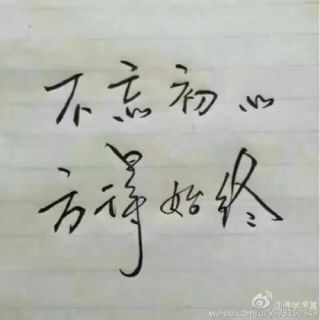 不忘初心
方得始终
weibo.com/u/5578150348